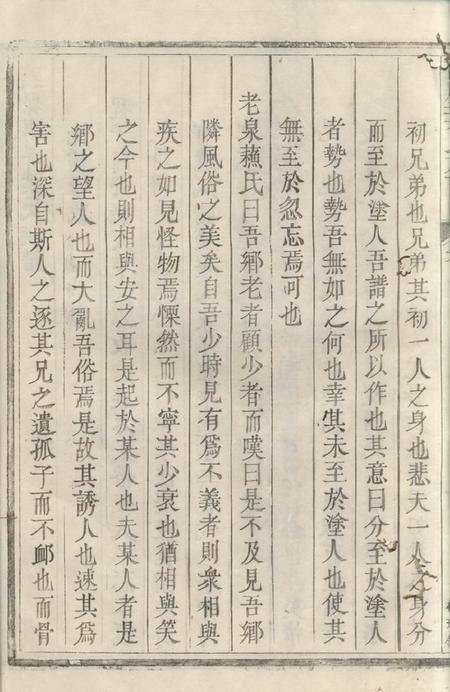 初兄弟也兄弟其初一人之身也悲夫一人之身分
而至於塗人吾譜之所以作也其意曰分至於塗人
者勢也勢吾無如之何也幸其未至於塗人也使其
無至於忽忘焉可也
老泉蘓氏曰吾鄉老者顧少者而嘆曰是不及見吾鄉
隣風俗之美矣自吾少時見有爲不義者則衆相與
疾之如見怪物焉慄然而不寧其少衰也猶相與笑
之今也則相與安之耳是起於某人也夫某人者是
鄉之望人也而大亂吾俗焉是故其誘人也速其爲
害也深自斯人之逐其兄之遺孤子而不䘏也而骨